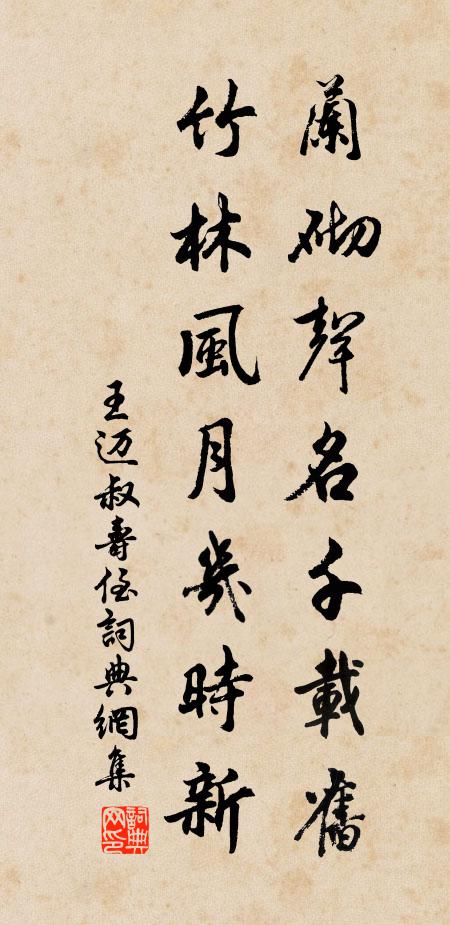 蘭砌聲名千載舊
竹林風月幾時新
王迈叔壽侄詞典網集
詞典网印